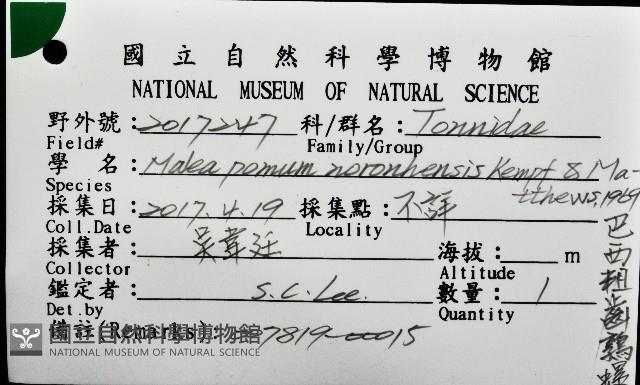 國立自然科學博物館
NATIONAL MUSEUM OF NATURAL SCIENCE
野外號：2017247 科/群名：Tonnidae
Field# Family/Group
學 名：Malea pomum noronhensis Kempf & Ma-
Species tthews, 1969
採集日：2017.4.19 採集點：不詳
Coll.Date Locality
採集者：吳韋廷 海拔： m
Collector Altitude
鑑定者：S.C.Lee. 數量：1
Det.by Quantity
備註(Remarks): 7819-00015
巴西粗齒鶉螺
國立自然科學博物館
NATIONAL MUSEUM OF NATURAL SCIENCE